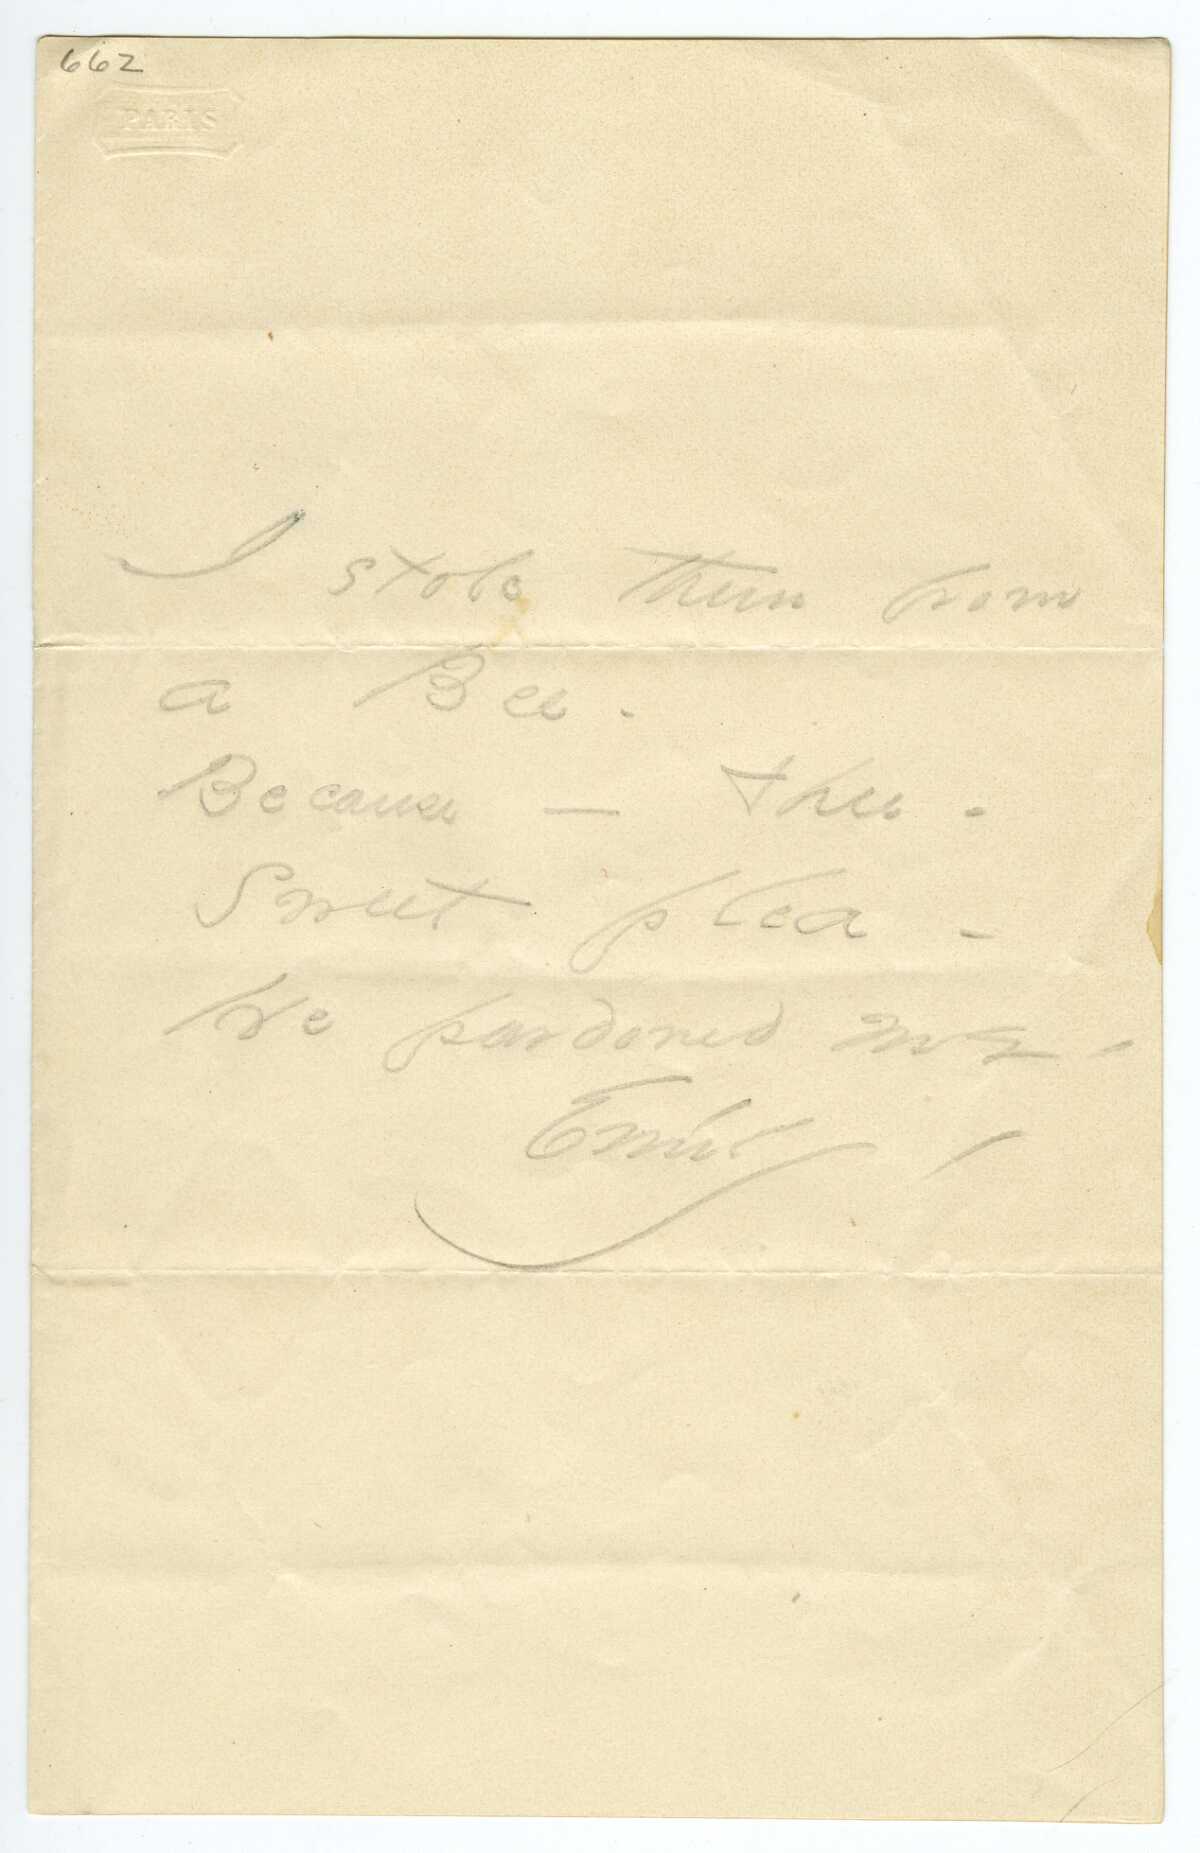 662
PARIS
I stole them from
a Bee -
Because - Thee -
Sweet plea -
He pardoned me -
Emily -